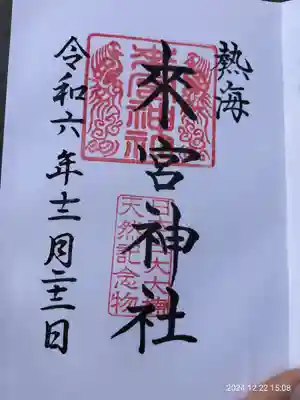 熱海
來宮神社
令和六年十二月二十二日
來宮神社
天然記念物
2024 12 22 15:08